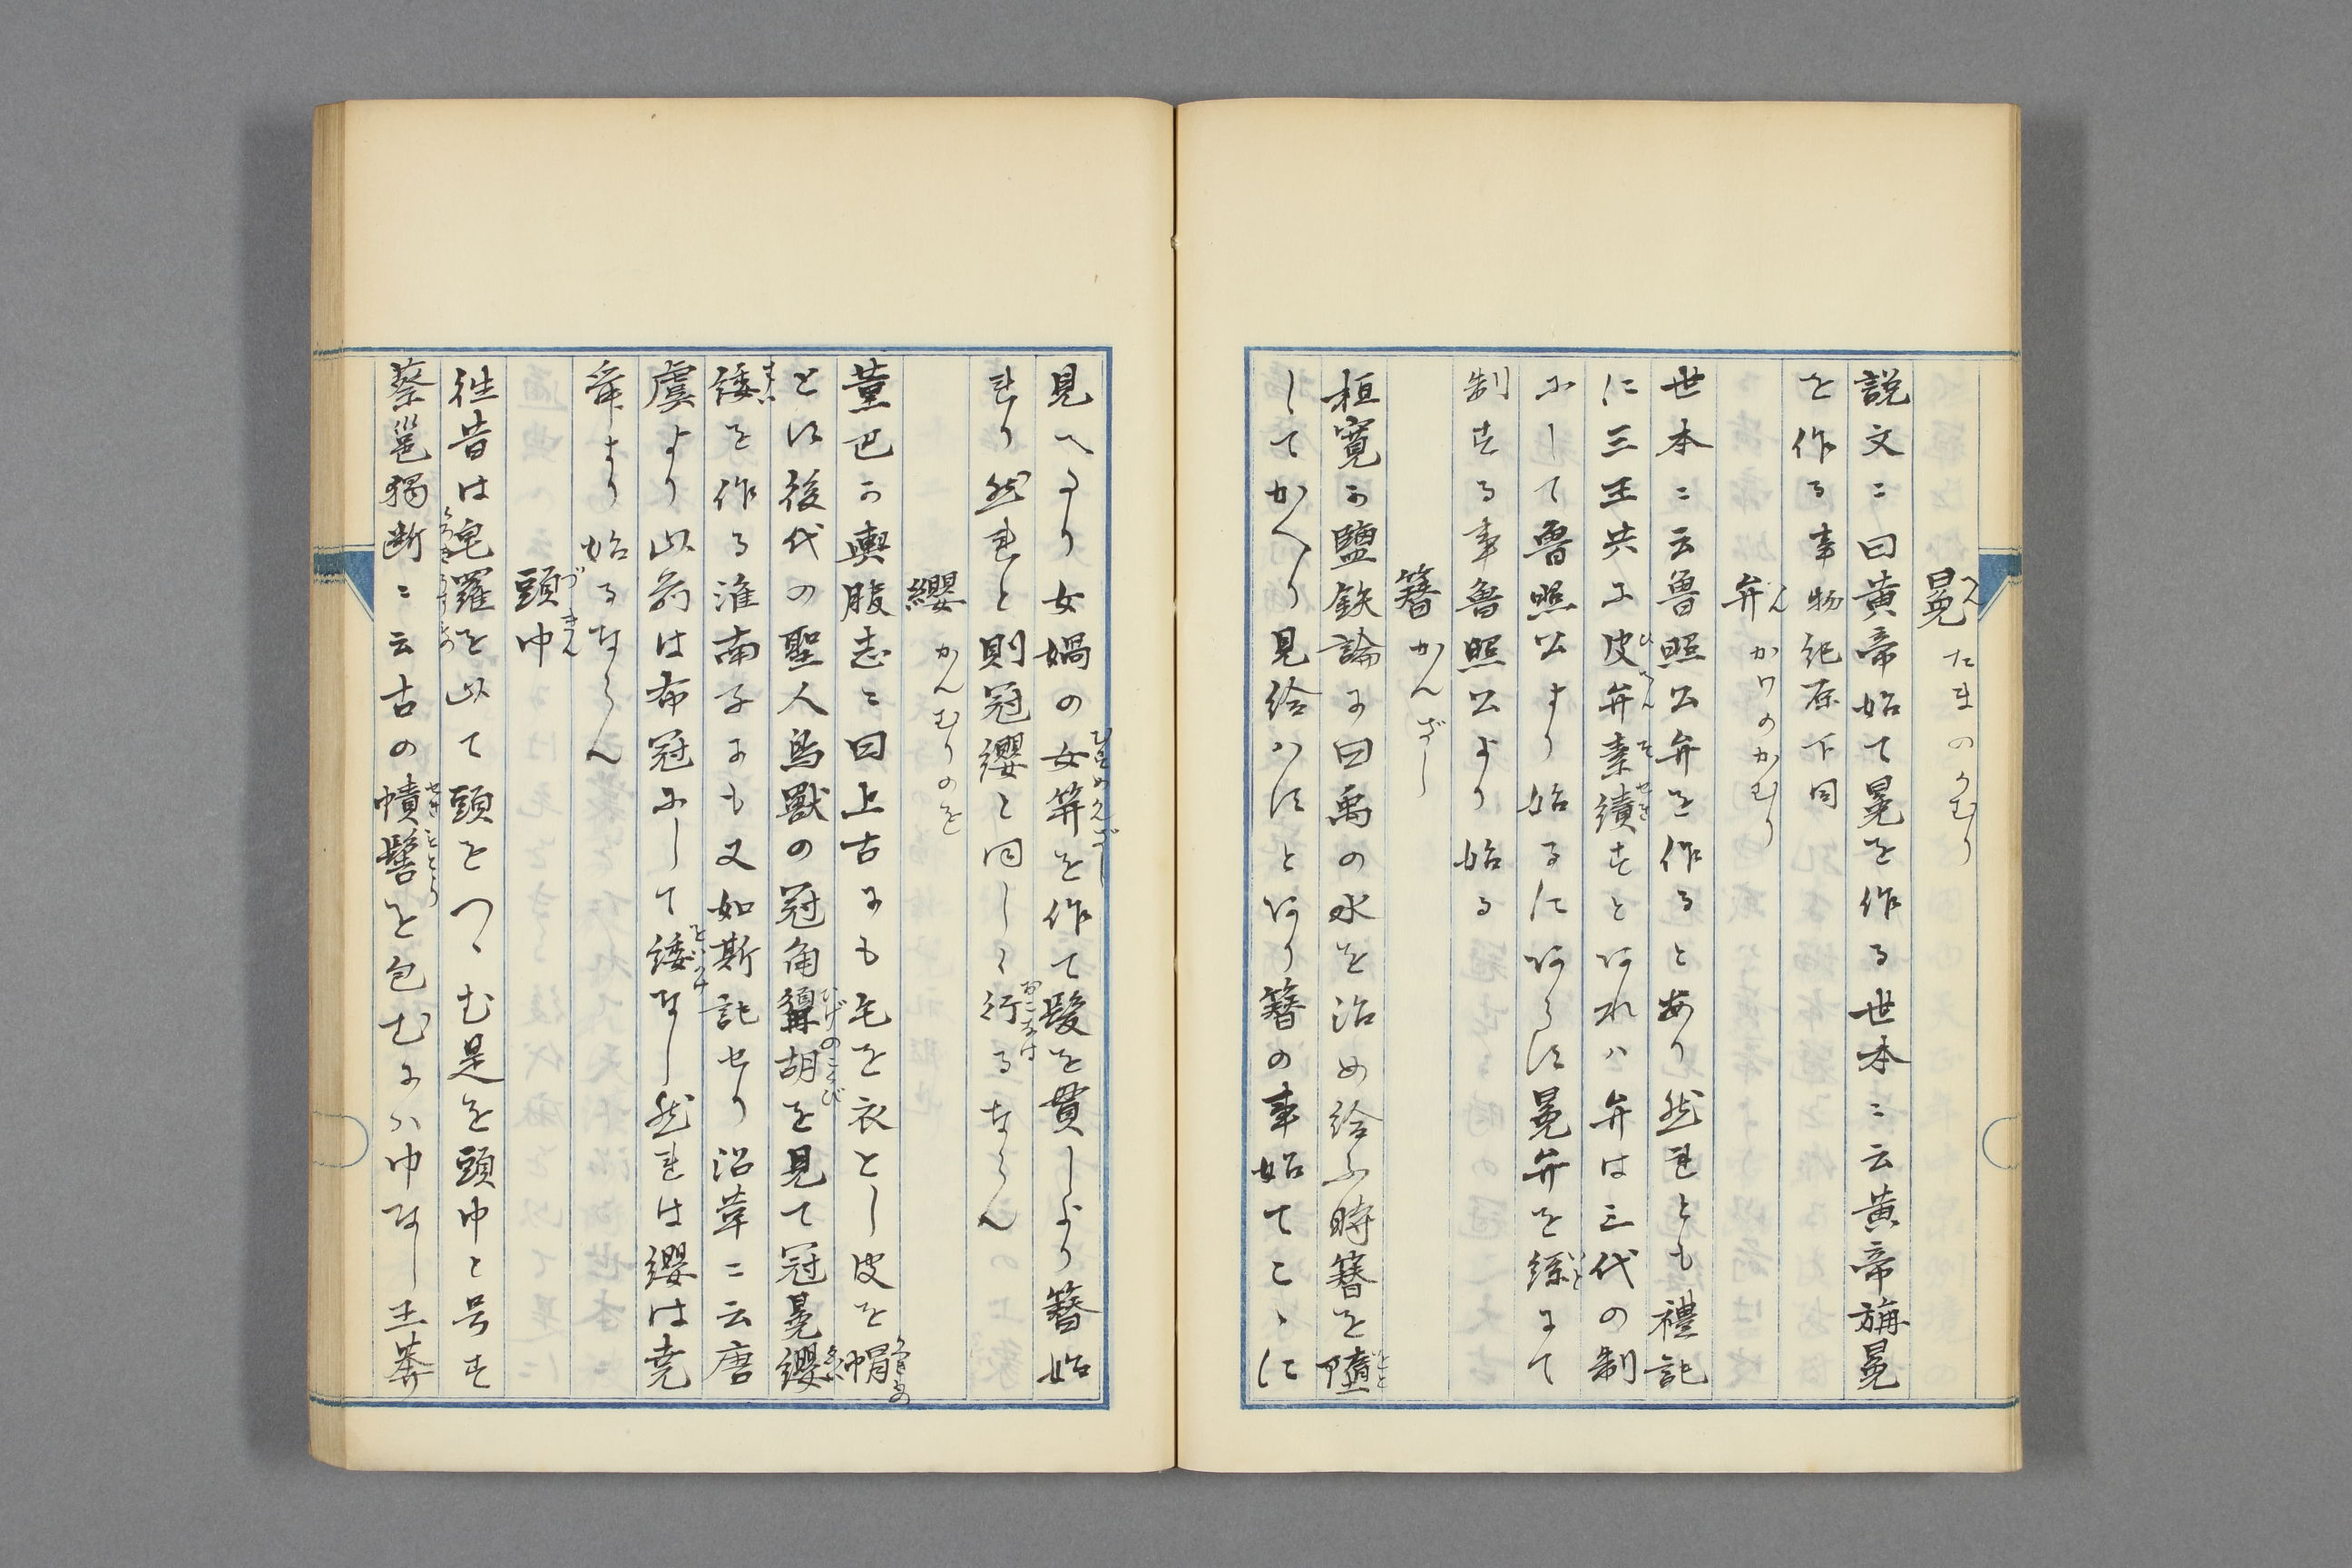 冕 べん たまのかむり
説文ニ曰黄帝始て冕を作る世本ニ云黄帝旃冕
を作る事物紀原下同
弁 べん かわのかむり
世本ニ云魯昭公弁を作るとあり然れとも禮記
に三王共に皮弁素績すとあれハ弁は三代の制
にして魯昭公より始るにあらす冕弁を綵にて
制する事魯昭公より始る
簪 かんざし
桓寛か鹽鉄論に曰禹の水を治め給ふ時簪を墮
してかへり見給ハすとあり簪の事始てこゝに
見へたり女媧の女笄を作て髪を貫しより簪始
まり然れと則冠纓と同しく行るならん
纓 かんむりのを
董巴か輿服志ニ曰上古にも毛を衣とし皮を帽
とす後代の聖人鳥獸の冠角䫇胡を見て冠冕纓
緌を作る淮南子にも又如斯記せり沿革ニ云唐
虞より以前は布冠にして緌なし然れは纓は堯
舜より始るならん
頭巾 づきん
往昔は皂羅を以て頭をつゝむ是を頭巾と号す
蔡邕獨断ニ云古の幘髻を包むにハ巾なし王莽